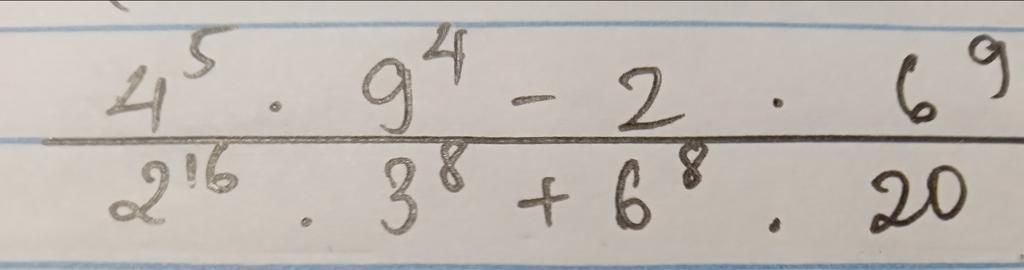 4⁵ · 9⁴ - 2 · 6⁹
2¹⁶ · 3⁸ + 6⁸ · 20